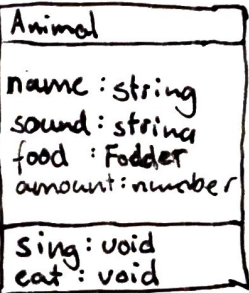 Animal
name : string
sound : string
food : Fodder
amount : number
sing : void
eat : void